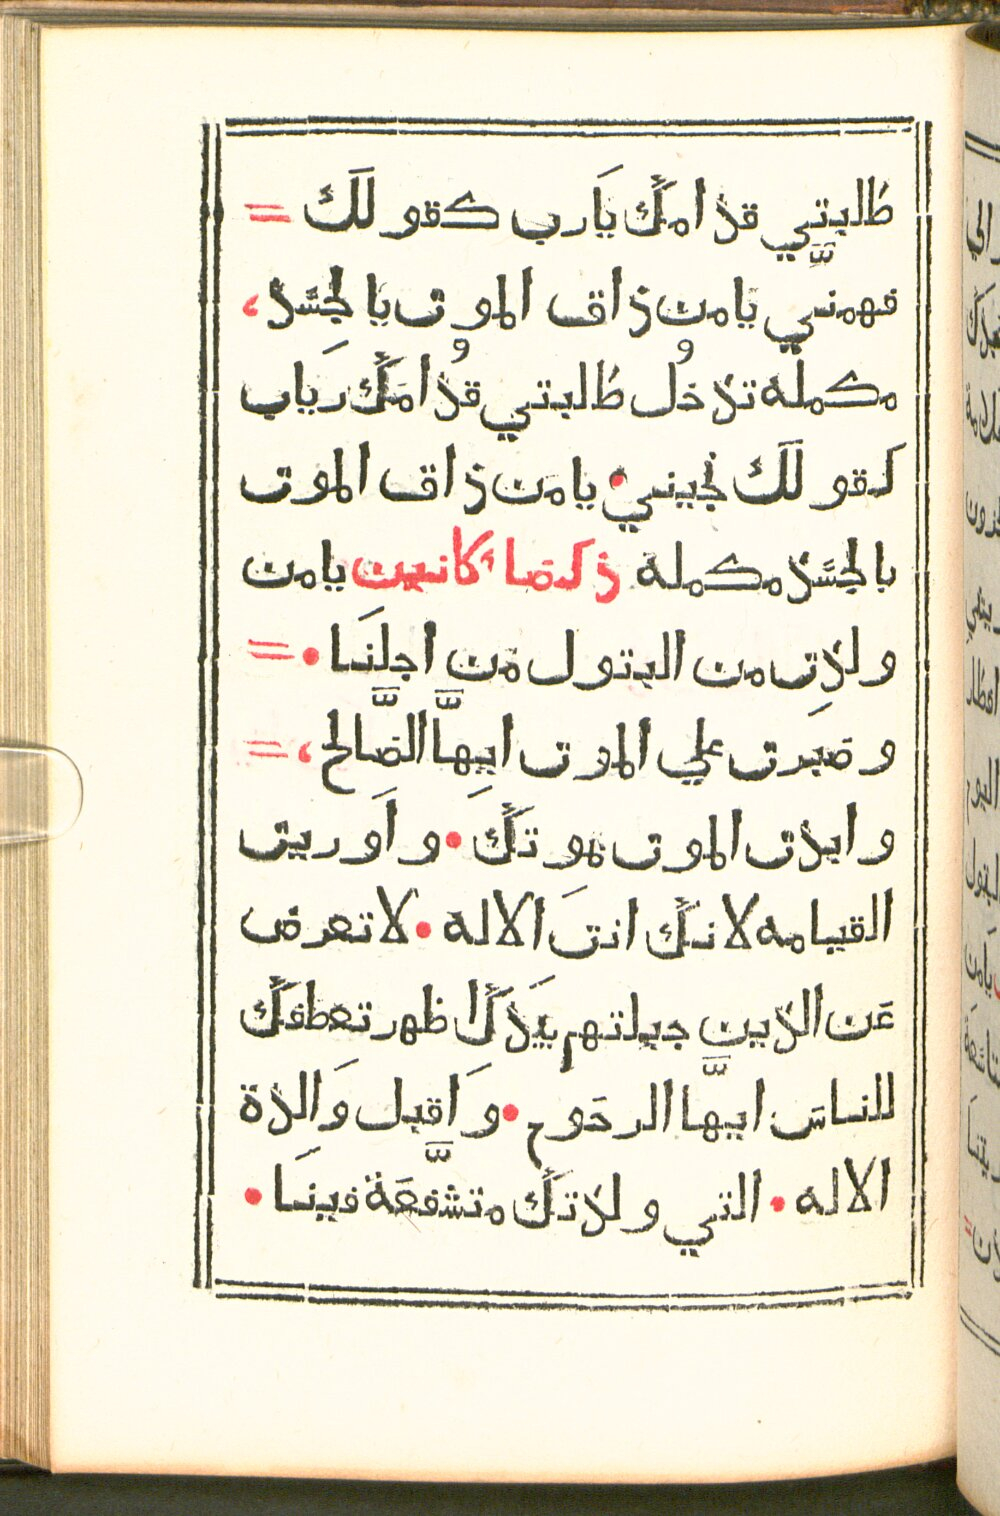 طلبتي قدامك يَارب كقولَك =
فهمني يا من ذاق الموت بالجسَد ،
مكملة تدخل طلبتي قدامَك رياب
كقولَك نجيني • يا من ذاق الموت
بالجسَد مكملة ذكصا كانين يا من
ولدِت من البتول من اجلنَا • =
وصَبرت علي الموت ايهَّا الصَّالح ، =
وابدت الموت بموتك • واَوريت
القيامه لانك انتَ الاله • لا تعرض
عَن الدين جبلتهم بيَدك اظهر تعطفك
للناسَ ايهَّا الرحَوم • وَاقبل وَالدة
الاله • التي ولدتك متشفعَة فينَا •